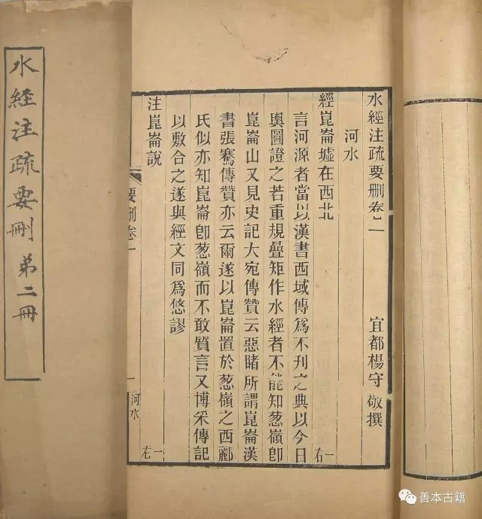 水經注疏要刪 第二冊
水經注疏要刪卷一
河水
宜都楊守敬撰
經崑崙墟在西北
言河源者當以漢書西域傳爲不刋之典以今日
輿圖證之若重規疊矩作水經者不能知葱嶺即
崑崙山又見史記大宛傳贊云惡睹所謂崑崙漢
書張騫傳贊亦云爾遂以崑崙置於葱嶺之西酈
氏似亦知崑崙卽葱嶺而不敢質言又博采傳記
以敷合之遂與經文同爲悠謬
注崑崙說
要刪卷一
河水
一右
一左
善本古籍